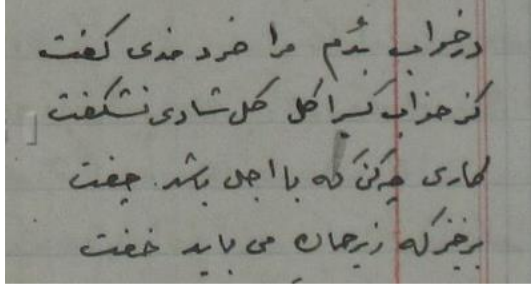 در خواب بُدم مرا خردمندی گفت
کز خواب کسیرا گل گل شادی نشکفت
کاری چه کنی که با اجل باشد جفت
برخیز که زیر خاک می باید خفت